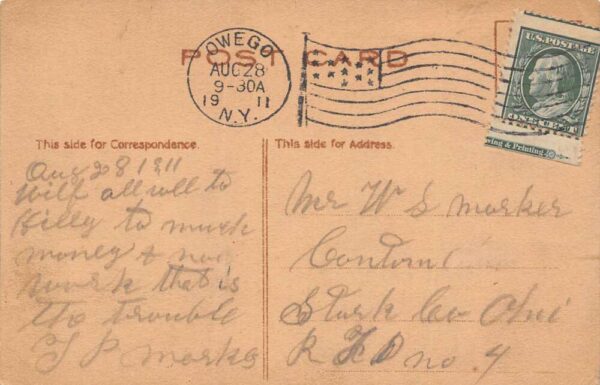 POST CARD
OWEGO
AUG 28
9-30A
19 11
N.Y.
U.S. POSTAGE
ONE CENT
ing & Printing
This side for Correspondence.
This side for Address.
Aug 28 1911
Will all well to
Hilly to much
money & no
work that is
tto trouble
T P Marker
Mr W S Marker
Canton
Stark Co Ohi
R F D no. 4